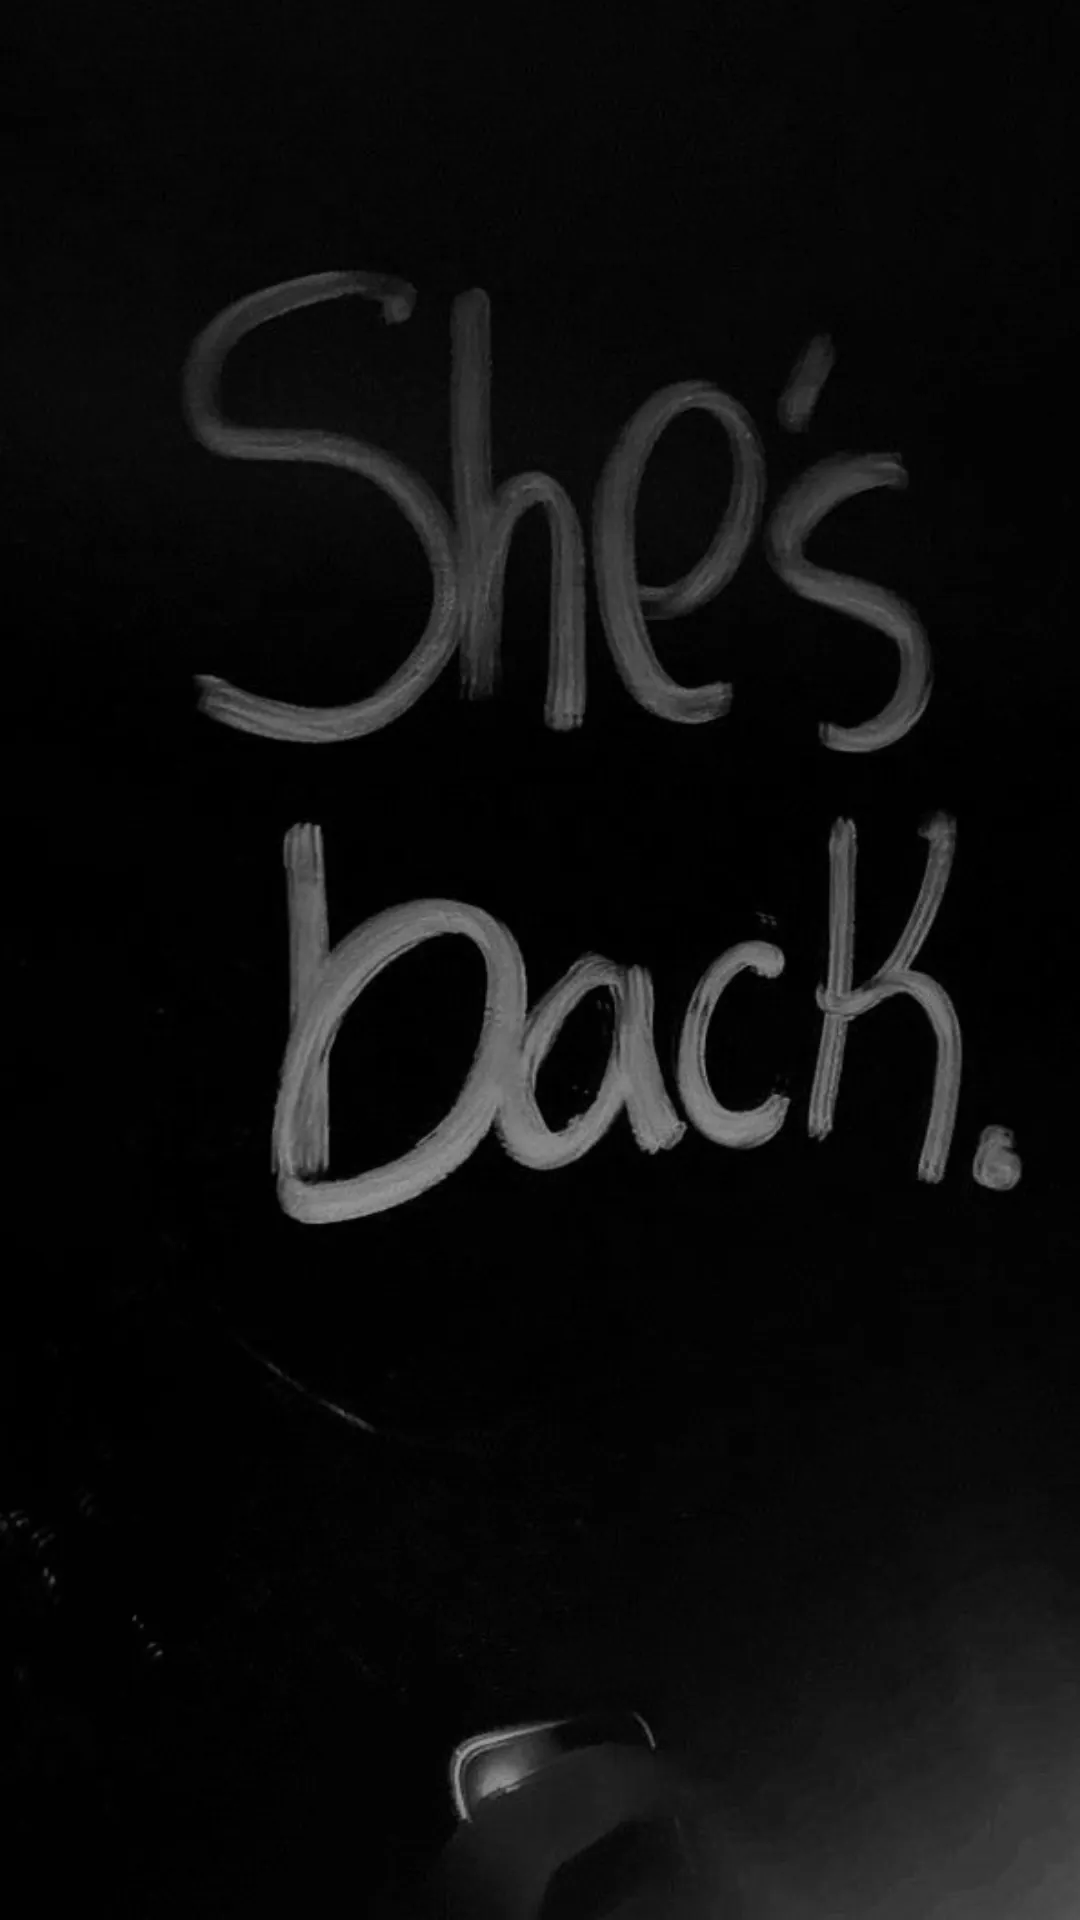 She's
back.